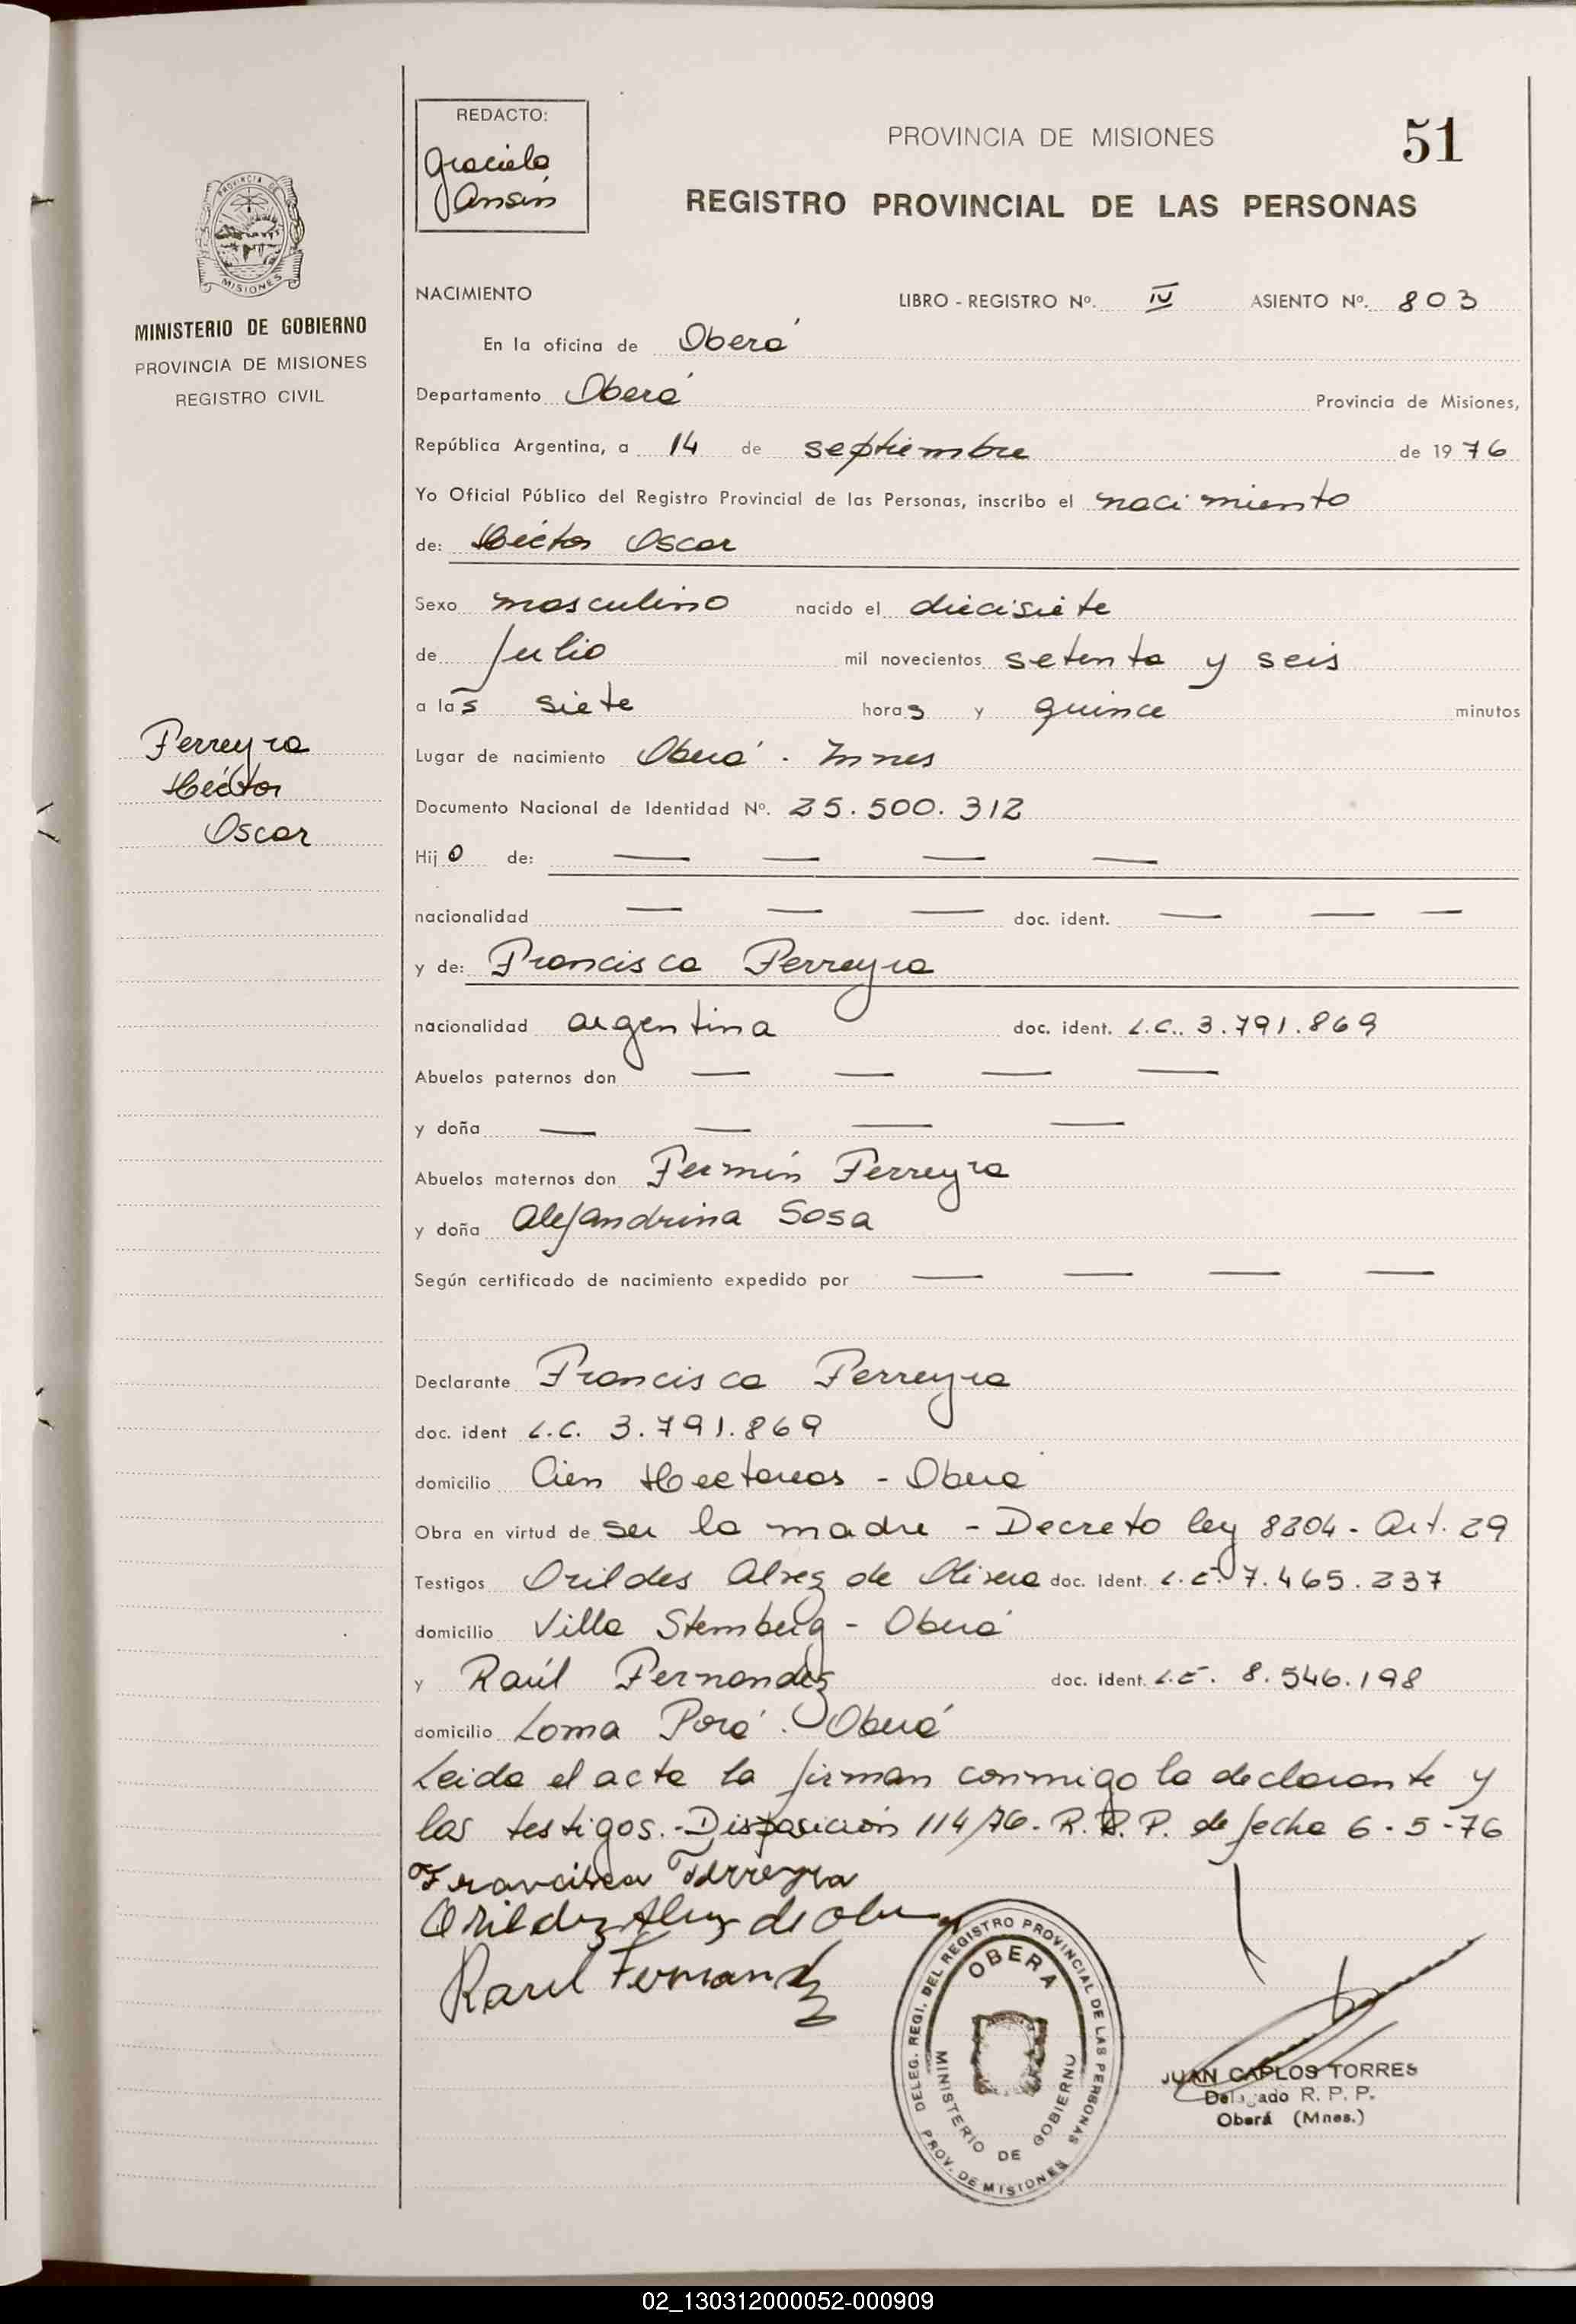 REDACTO:
Graciela
Ansin
PROVINCIA DE MISIONES
51
REGISTRO PROVINCIAL DE LAS PERSONAS
PROVINCIA DE
MISIONES
MINISTERIO DE GOBIERNO
PROVINCIA DE MISIONES
REGISTRO CIVIL
Ferreyra
Héctor
Oscar
NACIMIENTO
LIBRO - REGISTRO Nº. IV ASIENTO Nº. 803
En la oficina de Oberá
Departamento Oberá Provincia de Misiones,
República Argentina, a 14 de septiembre de 1976
Yo Oficial Público del Registro Provincial de las Personas, inscribo el nacimiento
de: Héctor Oscar
Sexo masculino nacido el diecisiete
de Julio mil novecientos setenta y seis
a las siete horas y quince minutos
Lugar de nacimiento Oberá - Mnes
Documento Nacional de Identidad Nº. 25.500.312
Hijo de: — — — —
nacionalidad — — — doc. ident. — — —
y de: Francisca Ferreyra
nacionalidad argentina doc. ident. L.C. 3.791.869
Abuelos paternos don — — — —
y doña — — — —
Abuelos maternos don Fermín Ferreyra
y doña Alejandrina Sosa
Según certificado de nacimiento expedido por — — — —
Declarante Francisca Ferreyra
doc. ident L.C. 3.791.869
domicilio Cien Hectareas - Oberá
Obra en virtud de ser la madre - Decreto ley 8204 - Art. 29
Testigos Orildes Alvez de Olivera doc. ident. L.E. 7.465.237
domicilio Villa Stemberg - Oberá
y Raúl Fernandez doc. ident. L.E. 8.546.198
domicilio Loma Porá - Oberá
Leida el acta la firman conmigo la declarante y
los testigos.- Disposición 114/76 - R.P.P. de fecha 6-5-76
Francisca Ferreyra
Orildez Alvez de
Raul Fernandez
DELEG. REGI. DEL REGISTRO PROVINCIAL DE LAS PERSONAS
OBERA
MINISTERIO DE GOBIERNO
PROV. DE MISIONES
JUAN CARLOS TORRES
Delegado R. P. P.
Oberá (Mnes.)
02_130312000052-000909